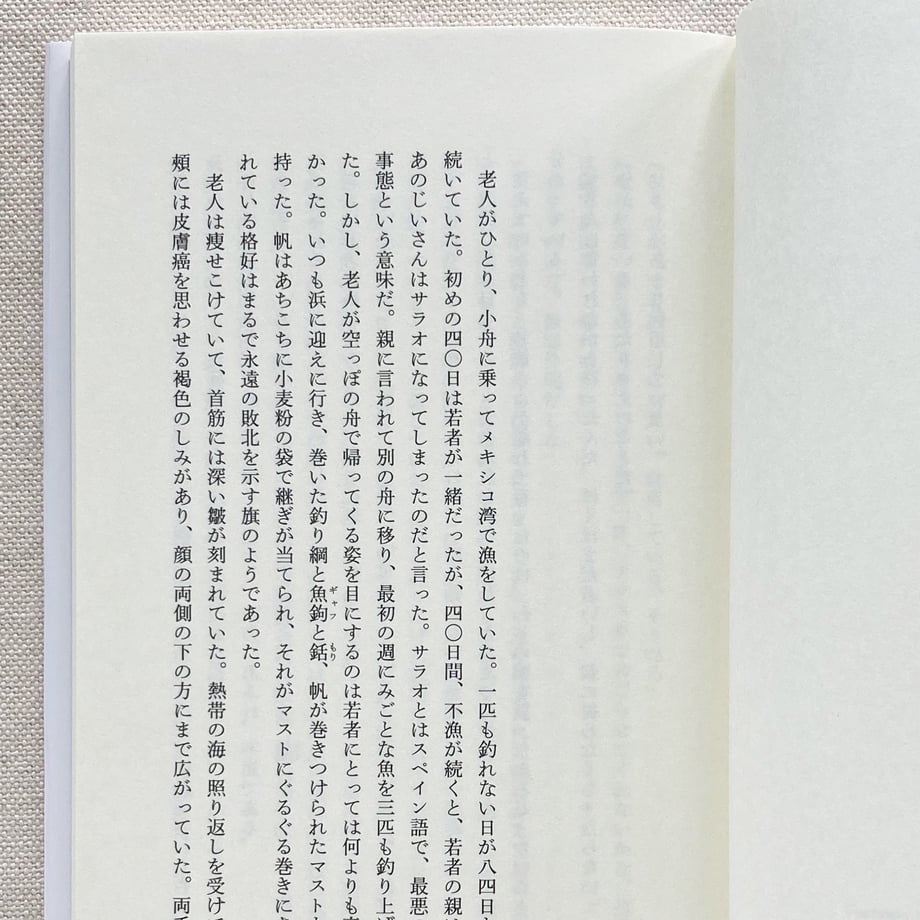 老人がひとり、小舟に乗ってメキシコ湾で漁をしていた。一匹も釣れない日が八四日も
続いていた。初めの四〇日は若者が一緒だったが、四〇日間、不漁が続くと、若者の親は
あのじいさんはサラオになってしまったのだと言った。サラオとはスペイン語で、最悪
事態という意味だ。親に言われて別の舟に移り、最初の週にみごとな魚を三匹も釣り上げ
た。しかし、老人が空っぽの舟で帰ってくる姿を目にするのは若者にとっては何よりも
かった。いつも浜に迎えに行き、巻いた釣り綱と魚鉤と銛、帆が巻きつけられたマスト
ギャフ
もり
持った。帆はあちこちに小麦粉の袋で継ぎが当てられ、それがマストにぐるぐる巻きに
れている格好はまるで永遠の敗北を示す旗のようであった。
老人は痩せこけていて、首筋には深い皺が刻まれていた。熱帯の海の照り返しを受けて
頰には皮膚癌を思わせる褐色のしみがあり、顔の両側の下の方にまで広がっていた。両手